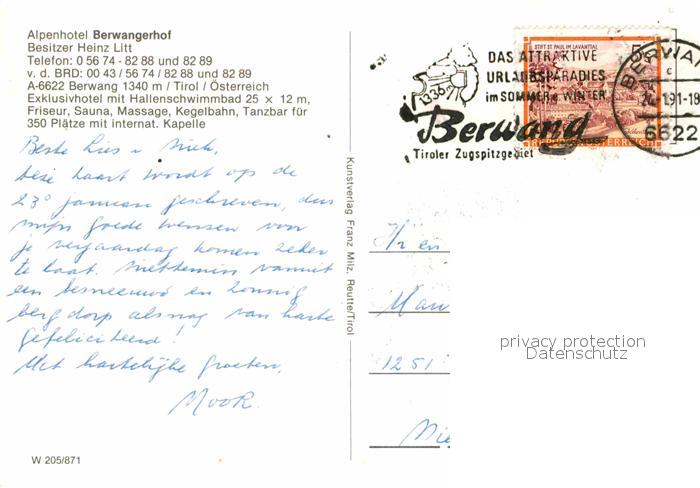 Alpenhotel Berwangerhof
Besitzer Heinz Litt
Telefon: 0 56 74 - 82 88 und 82 89
v. d. BRD: 00 43 / 56 74 / 82 88 und 82 89
A-6622 Berwang 1340 m / Tirol / Österreich
Exklusivhotel mit Hallenschwimmbad 25 × 12 m,
Friseur, Sauna, Massage, Kegelbahn, Tanzbar für
350 Plätze mit internat. Kapelle
Beste Lies
deze kaart wordt op de
23e januari geschreven, dus
mijn goede wensen voor
je verjaardag komen zeker
te laat. Niettemin vanuit
een besneeuwd en zonnig
bergdorp alsnog van harte
gefeliciteerd!
Met hartelijke groeten,
NooR.
W 205/871
Kunstverlag Franz Milz, Reutte/Tirol
STIFT ST. PAUL IM LAVANTTAL
DAS ATTRAKTIVE
URLAUBSPARADIES
im SOMMER u. WINTER
1336m
Berwang
Tiroler Zugspitzgebiet
BERWANG
c
.1.91-18
6622
Hr en
Mau
1251
privacy protection
Datenschutz